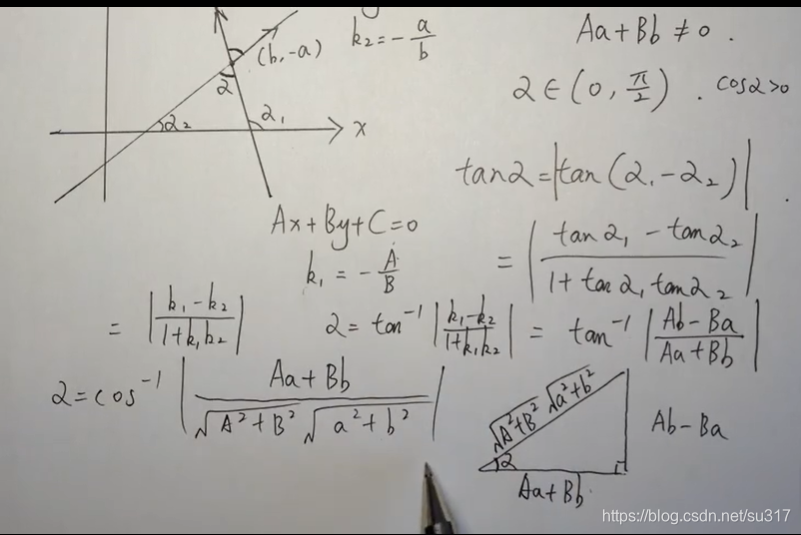 k₂ = -a/b
(b, -a)
Aa + Bb ≠ 0 .
α
α ∈ (0, π/2) . cosα>0
α₂
α₁
x
tanα = |tan(α₁ - α₂)|
Ax + By + C = 0
k₁ = -A/B
= |(tanα₁ - tanα₂)/(1 + tanα₁ tanα₂)|
= |(k₁ - k₂)/(1 + k₁k₂)|
α = tan⁻¹ |(k₁ - k₂)/(1 + k₁k₂)| = tan⁻¹ |(Ab - Ba)/(Aa + Bb)|
α = cos⁻¹ |(Aa + Bb)/(√(A² + B²) √(a² + b²))|
√(A² + B²) √(a² + b²)
Ab - Ba
α
Aa + Bb
https://blog.csdn.net/su317